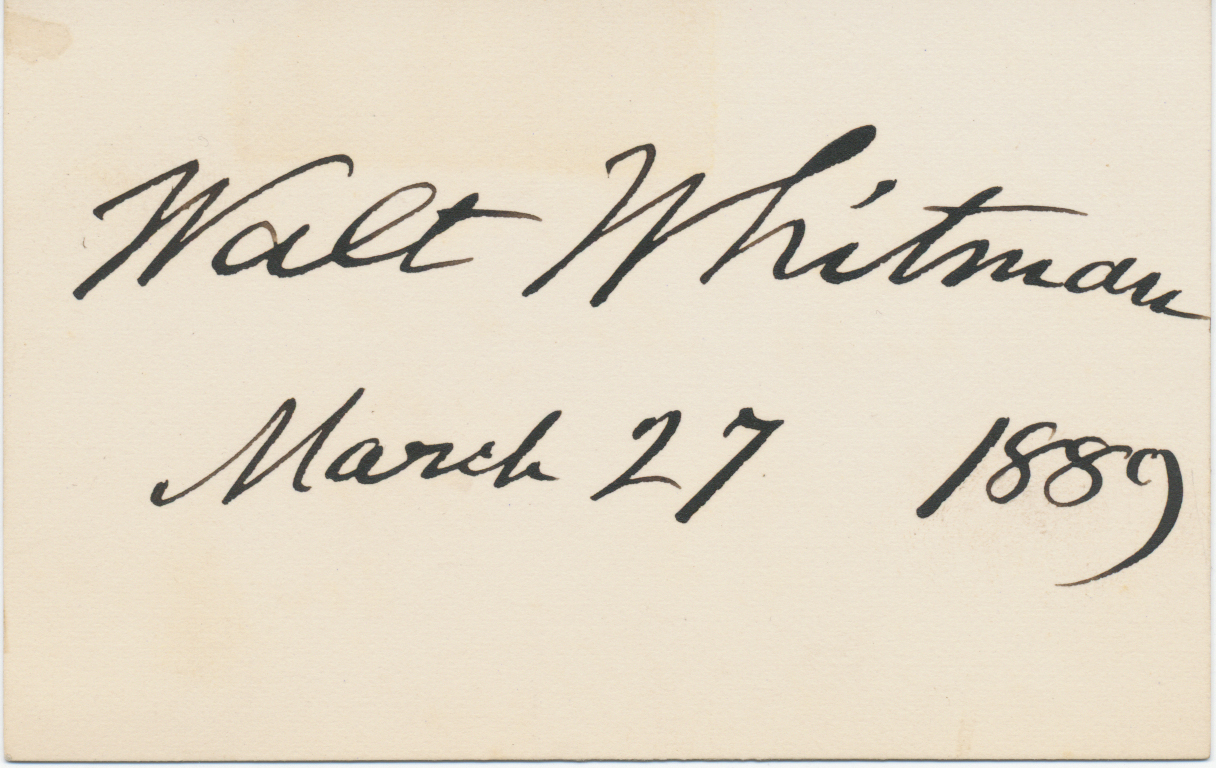 Walt Whitman
March 27 1889